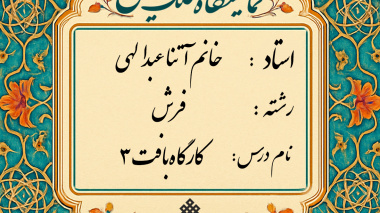 نمایشگاه
استاد : خانم آتنا عبدالهی
رشته : فرش
نام درس: کارگاه بافت ۳